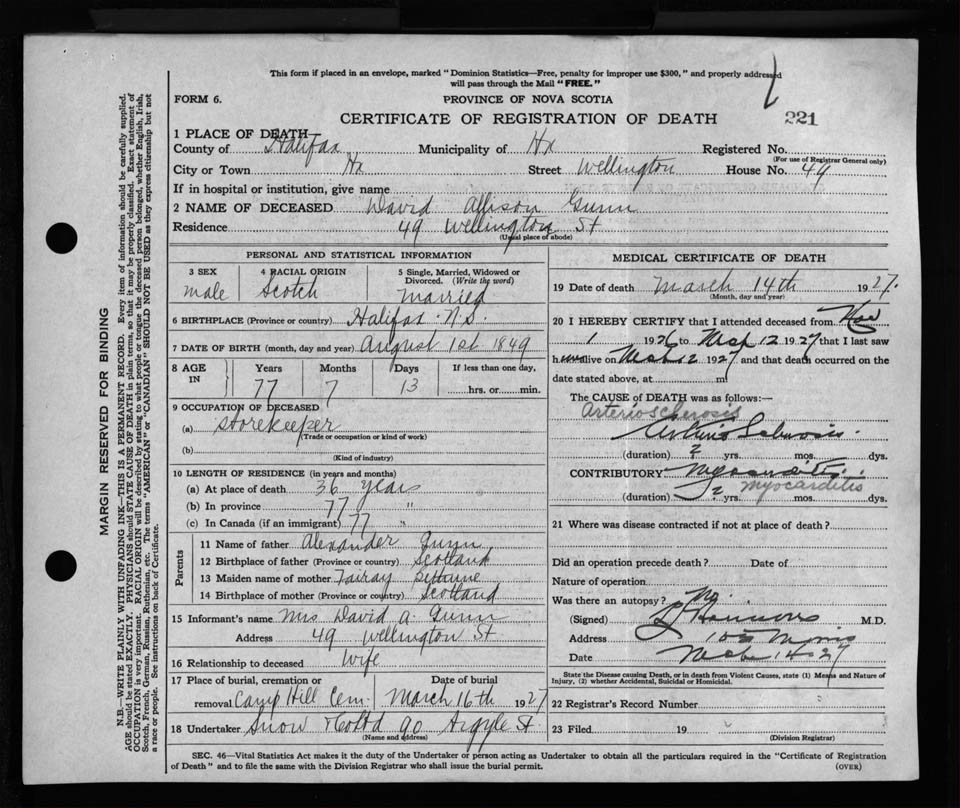 This form if placed in an envelope, marked "Dominion Statistics—Free, penalty for improper use $300," and properly addressed
will pass through the Mail "FREE."
FORM 6.
PROVINCE OF NOVA SCOTIA
CERTIFICATE OF REGISTRATION OF DEATH
221
1 PLACE OF DEATH
County of Halifax Municipality of Hx Registered No.
(For use of Registrar General only)
City or Town Hx Street Wellington House No. 49
If in hospital or institution, give name
2 NAME OF DECEASED David Allison Gunn
Residence 49 Wellington St
(Usual place of abode)
PERSONAL AND STATISTICAL INFORMATION
3 SEX male
4 RACIAL ORIGIN Scotch
5 Single, Married, Widowed or Divorced. (Write the word) married
6 BIRTHPLACE (Province or country) Halifax N.S.
7 DATE OF BIRTH (month, day and year) August 1st 1849
8 AGE IN Years Months Days If less than one day,
77 7 13 hrs. or min.
9 OCCUPATION OF DECEASED
(a) Storekeeper
(Trade or occupation or kind of work)
(b)
(Kind of industry)
10 LENGTH OF RESIDENCE (in years and months)
(a) At place of death 36 years
(b) In province 77 "
(c) In Canada (if an immigrant) 77 "
Parents
11 Name of father Alexander Gunn
12 Birthplace of father (Province or country) Scotland
13 Maiden name of mother
14 Birthplace of mother (Province or country) Scotland
15 Informant's name Mrs David A. Gunn
Address 49 Wellington St
16 Relationship to deceased Wife
17 Place of burial, cremation or removal Camp Hill Cem. Date of burial March 16th 1927
18 Undertaker Snow & Co Ltd 90 Argyle St
(Name and address)
MEDICAL CERTIFICATE OF DEATH
19 Date of death March 14th 1927.
(Month, day and year)
20 I HEREBY CERTIFY that I attended deceased from Nov
1 1926 to Mch 12 1927 that I last saw
him alive on Mch 12 1927 and that death occurred on the
date stated above, at m
The CAUSE of DEATH was as follows:—
Arteriosclerosis
Arterio Sclerosis.
(duration) 2 yrs. mos. dys.
CONTRIBUTORY Myocarditis
myocarditis
2 yrs. mos. dys.
21 Where was disease contracted if not at place of death?
Did an operation precede death? Date of
Nature of operation
Was there an autopsy? No.
(Signed) M.D.
Address 103 Morris
Date Mch 14 27
State the Disease causing Death, or in death from Violent Causes, state (1) Means and Nature of
Injury, (2) whether Accidental, Suicidal or Homicidal.
22 Registrar's Record Number
23 Filed 19
(Division Registrar)
SEC. 46—Vital Statistics Act makes it the duty of the Undertaker or person acting as Undertaker to obtain all the particulars required in the "Certificate of Registration
of Death" and to file the same with the Division Registrar who shall issue the burial permit.
(OVER)
MARGIN RESERVED FOR BINDING
N.B.—WRITE PLAINLY WITH UNFADING INK—THIS IS A PERMANENT RECORD. Every item of information should be carefully supplied.
AGE should be stated EXACTLY. PHYSICIANS should STATE CAUSE OF DEATH in plain terms, so that it may be properly classified. Exact statement of
OCCUPATION is very important. RACIAL ORIGIN will be described by stating to what people or tongue the deceased person belonged, whether English, Irish,
Scotch, French, German, Russian, Ruthenian, etc. The terms "AMERICAN" or "CANADIAN" SHOULD NOT BE USED as they express citizenship but not
a race or people. See instructions on back of Certificate.